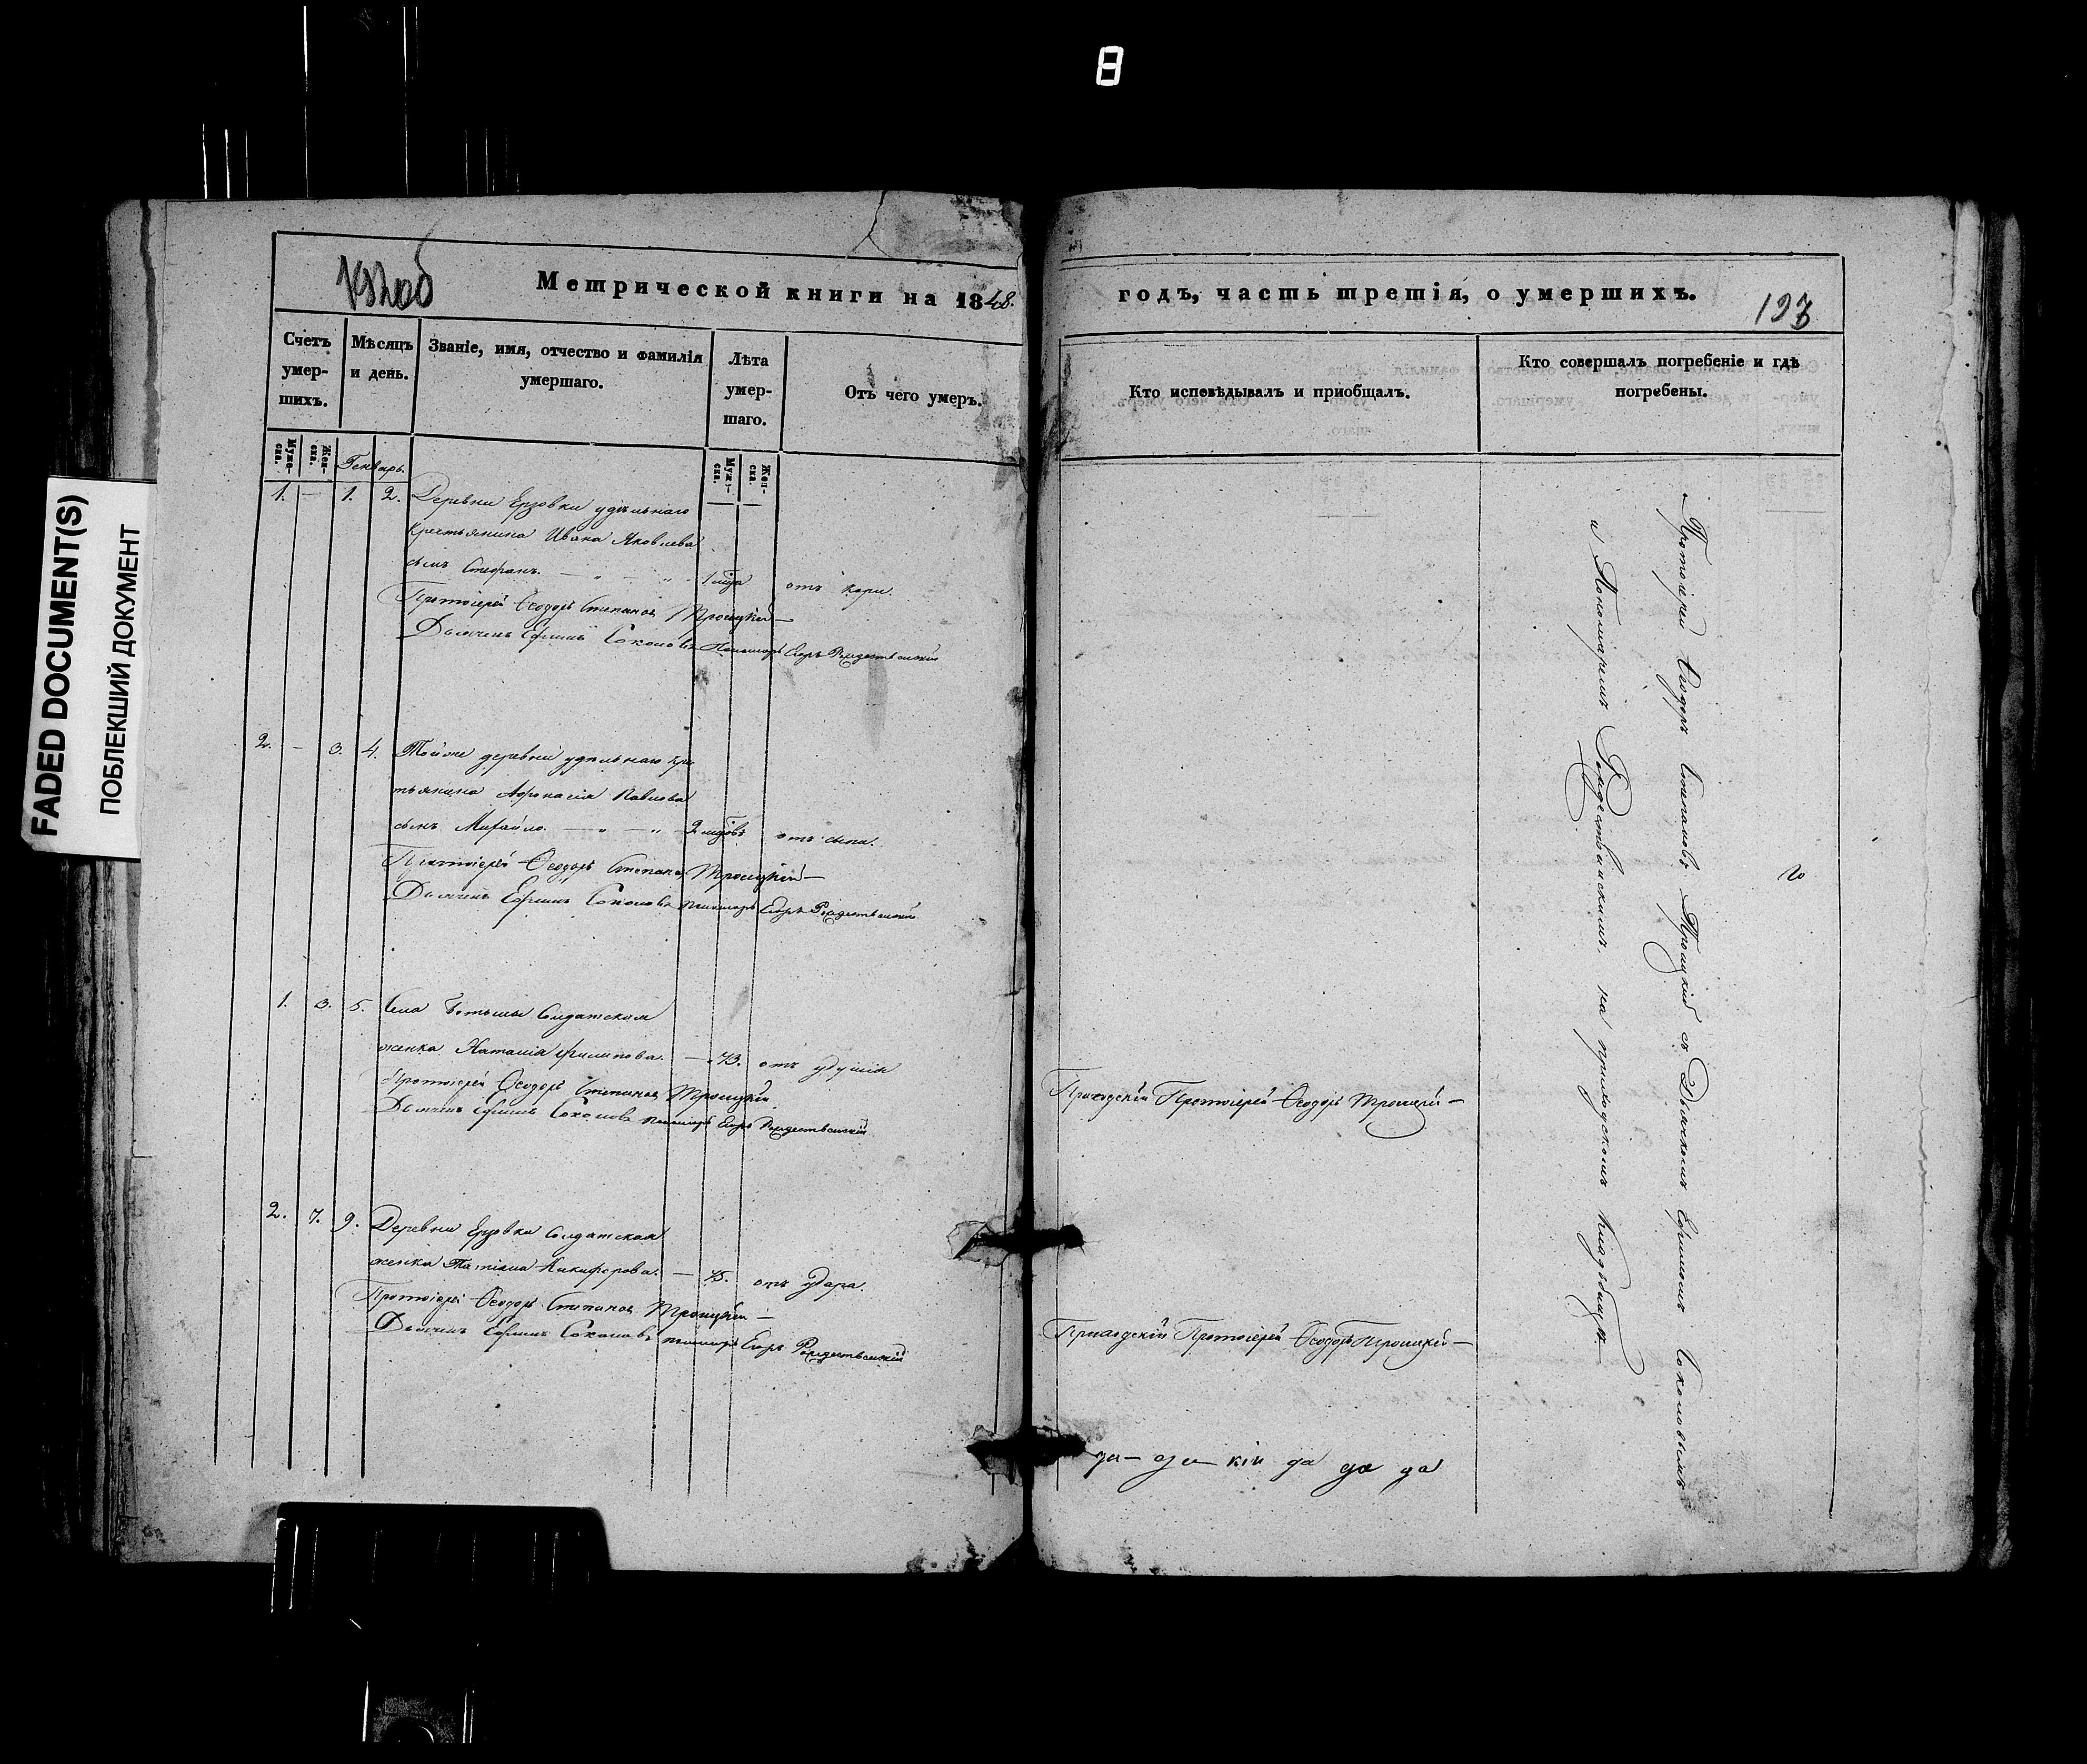 FADED DOCUMENT(S)
ПОБЛЕКШИЙ ДОКУМЕНТ
8
192об
Метрической книги на 1848.
годъ, часть третія, о умершихъ.
193
Счетъ умер-
шихъ.
Мѣсяцъ
и день.
Званіе, имя, отчество и фамилія
умершаго.
Лѣта
умер-
шаго.
Отъ чего умеръ.
Кто исповѣдывалъ и приобщалъ.
Кто совершалъ погребеніе и гдѣ
погребены.
Муже-
ска.
Жен-
ска.
Генварь.
Муже-
ска.
Жен-
ска.
1. — 1. 2. Деревни Ерзовки удѣльнаго
крестьянина Ивана Яковлева
сынъ Стефанъ. — „ — „ 1 отъ кори.
Протоіерей Ѳеодоръ Степановъ Троицкій —
Дьячекъ Ефимъ Соколовъ Пономарь Егоръ Рождественскій
2. — 3. 4. Тойже деревни удѣльнаго кре
тьянина Афонасія Павлова
сынъ Михайло. — „ — „ 2 отъ
Протоіерей Ѳеодоръ Степановъ Троицкій —
Дьячекъ Ефимъ Соколовъ пономарь Егоръ Рождественскій
1. 3. 5. Села Солдатская
женка Наталія Филипова. — 73. отъ удушія
Протоіерей Ѳеодоръ Степановъ Троицкій
Дьячекъ Ефимъ Соколовъ пономарь Егоръ Рождественскій
Приходскій Протоіерей Ѳеодоръ Троицкій —
2. 7. 9. Деревни Ерзовки Солдатская
женка Татіана Никифорова. — 75. отъ удара.
Протоіерей Ѳеодоръ Степановъ Троицкій —
Дьячекъ Ефимъ Соколовъ пономарь Егоръ Рождественскій
Приходскій Протоіерей Ѳеодоръ Троицкій —
да — кій да да да
Протоіерей Ѳеодоръ Степановъ Троицкій съ Дьячкомъ Ефимомъ Соколовымъ
и Пономаремъ Рождественскимъ, на приходскомъ кладбищѣ.